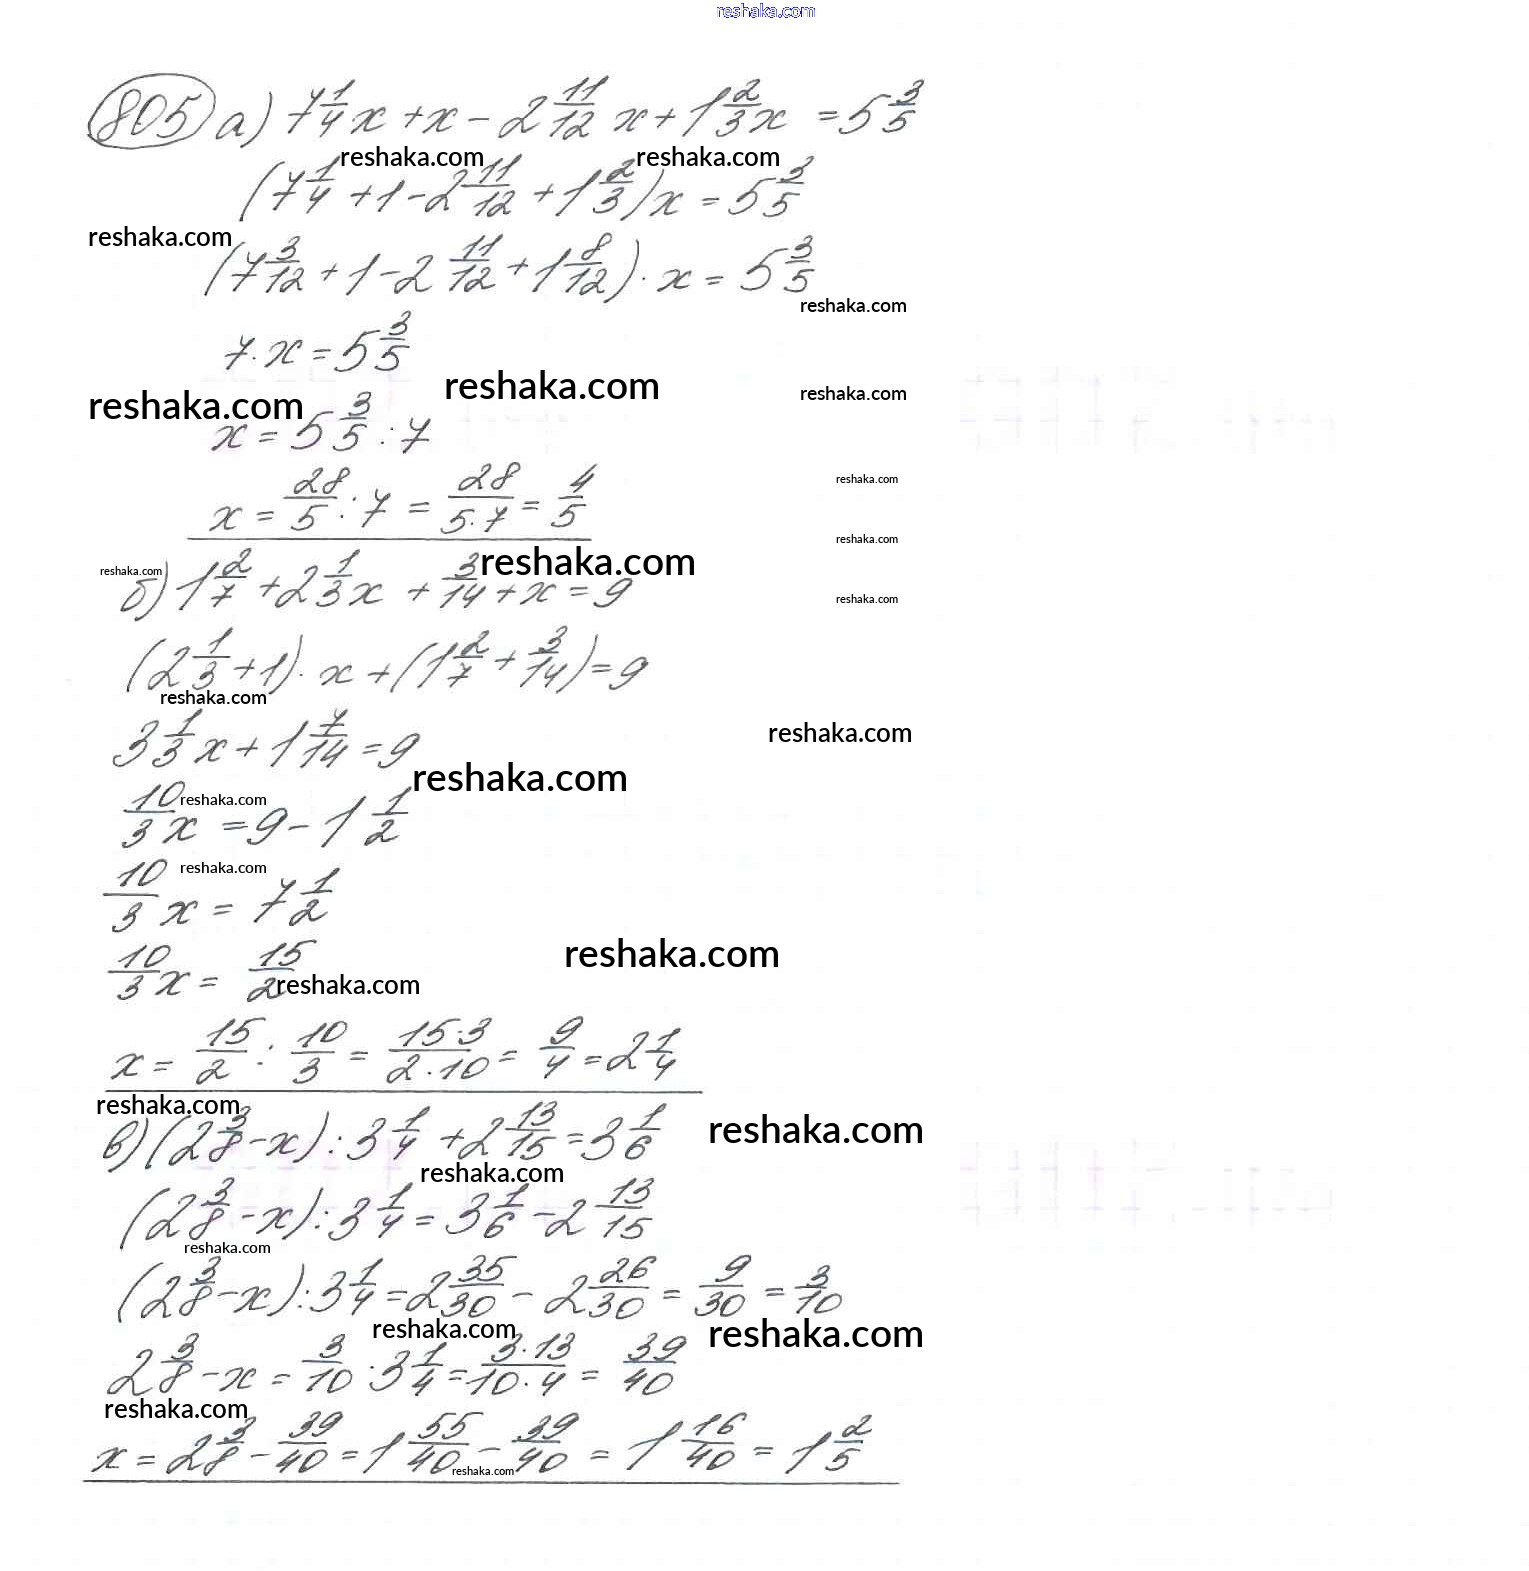 reshaka.com
805 а) 7 1/4 x + x - 2 11/12 x + 1 2/3 x = 5 3/5
reshaka.com reshaka.com
(7 1/4 + 1 - 2 11/12 + 1 2/3) x = 5 3/5
reshaka.com
(7 3/12 + 1 - 2 11/12 + 1 8/12) · x = 5 3/5
reshaka.com
7 · x = 5 3/5
reshaka.com reshaka.com
reshaka.com
x = 5 3/5 : 7
reshaka.com
x = 28/5 : 7 = 28/(5·7) = 4/5
reshaka.com
reshaka.com reshaka.com
б) 1 2/7 + 2 1/3 x + 3/14 + x = 9
reshaka.com
(2 1/3 + 1) · x + (1 2/7 + 3/14) = 9
reshaka.com
3 1/3 x + 1 7/14 = 9
reshaka.com
reshaka.com
reshaka.com
10/3 x = 9 - 1 1/2
reshaka.com
10/3 x = 7 1/2
reshaka.com
10/3 x = 15/2
reshaka.com
x = 15/2 : 10/3 = (15·3)/(2·10) = 9/4 = 2 1/4
reshaka.com
в) (2 3/8 - x) : 3 1/4 + 2 13/15 = 3 1/6
reshaka.com
reshaka.com
(2 3/8 - x) : 3 1/4 = 3 1/6 - 2 13/15
reshaka.com
(2 3/8 - x) : 3 1/4 = 2 35/30 - 2 26/30 = 9/30 = 3/10
reshaka.com reshaka.com
2 3/8 - x = 3/10 · 3 1/4 = (3·13)/(10·4) = 39/40
reshaka.com
x = 2 3/8 - 39/40 = 1 55/40 - 39/40 = 1 16/40 = 1 2/5
reshaka.com